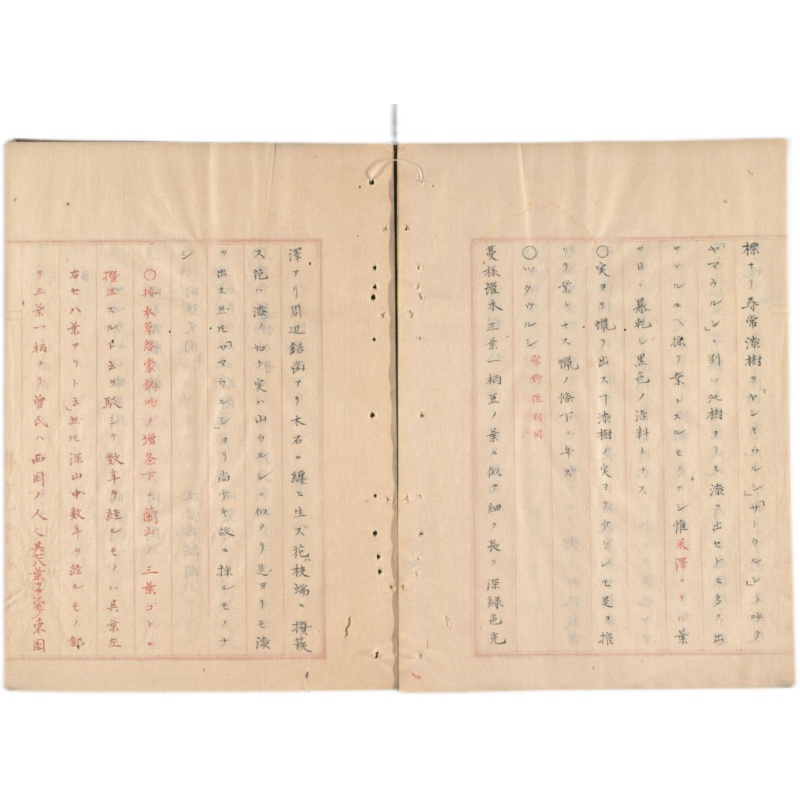 標ナリ尋常漆樹ヲ「ヤシキウルシ」「サトウルシ」ト呼ク
「ヤマウルシ」ニ別ツ此樹ヨリモ漆ヲ出セドモ多ク出
サヾルユヘ掻ク業トスルモノナシ惟米澤ニテハ葉
ヲ日ニ暴乾シ黒色ノ染料トナス
〇実ヨク蠟ヲ出ス漆樹ノ実ヨリ少ナシモ是ヲ搾
リテ業トナス蠟ノ條下ニ
〇ツタウルシ
蔓様灌木三葉一柄豆ノ葉ニ似テ細ク長ク深緑色光
澤アリ周辺鋸歯アリ木石ニ纏ヒ生ズ花ハ枝端ニ攅簇
ス花ハ漆ノ如ク実ハ山ウルシニ似タリ是ヨリモ漆
ヲ出ス然ル「ヤマウルシ」ヨリ尚少キ故ニ採ルモノナ
シ
〇按本草啓蒙鉤吻ノ増条下ニ蘭山ノ三葉ゴトニ
攅生スルト云ヲ駁シテ数年ヲ経シモノハ其葉左
右七八葉アリト云然ル深山中数年ヲ経ルモノ都
テ三葉一柄ナリ曽氏ハ西国ノ人 其七八葉 東国